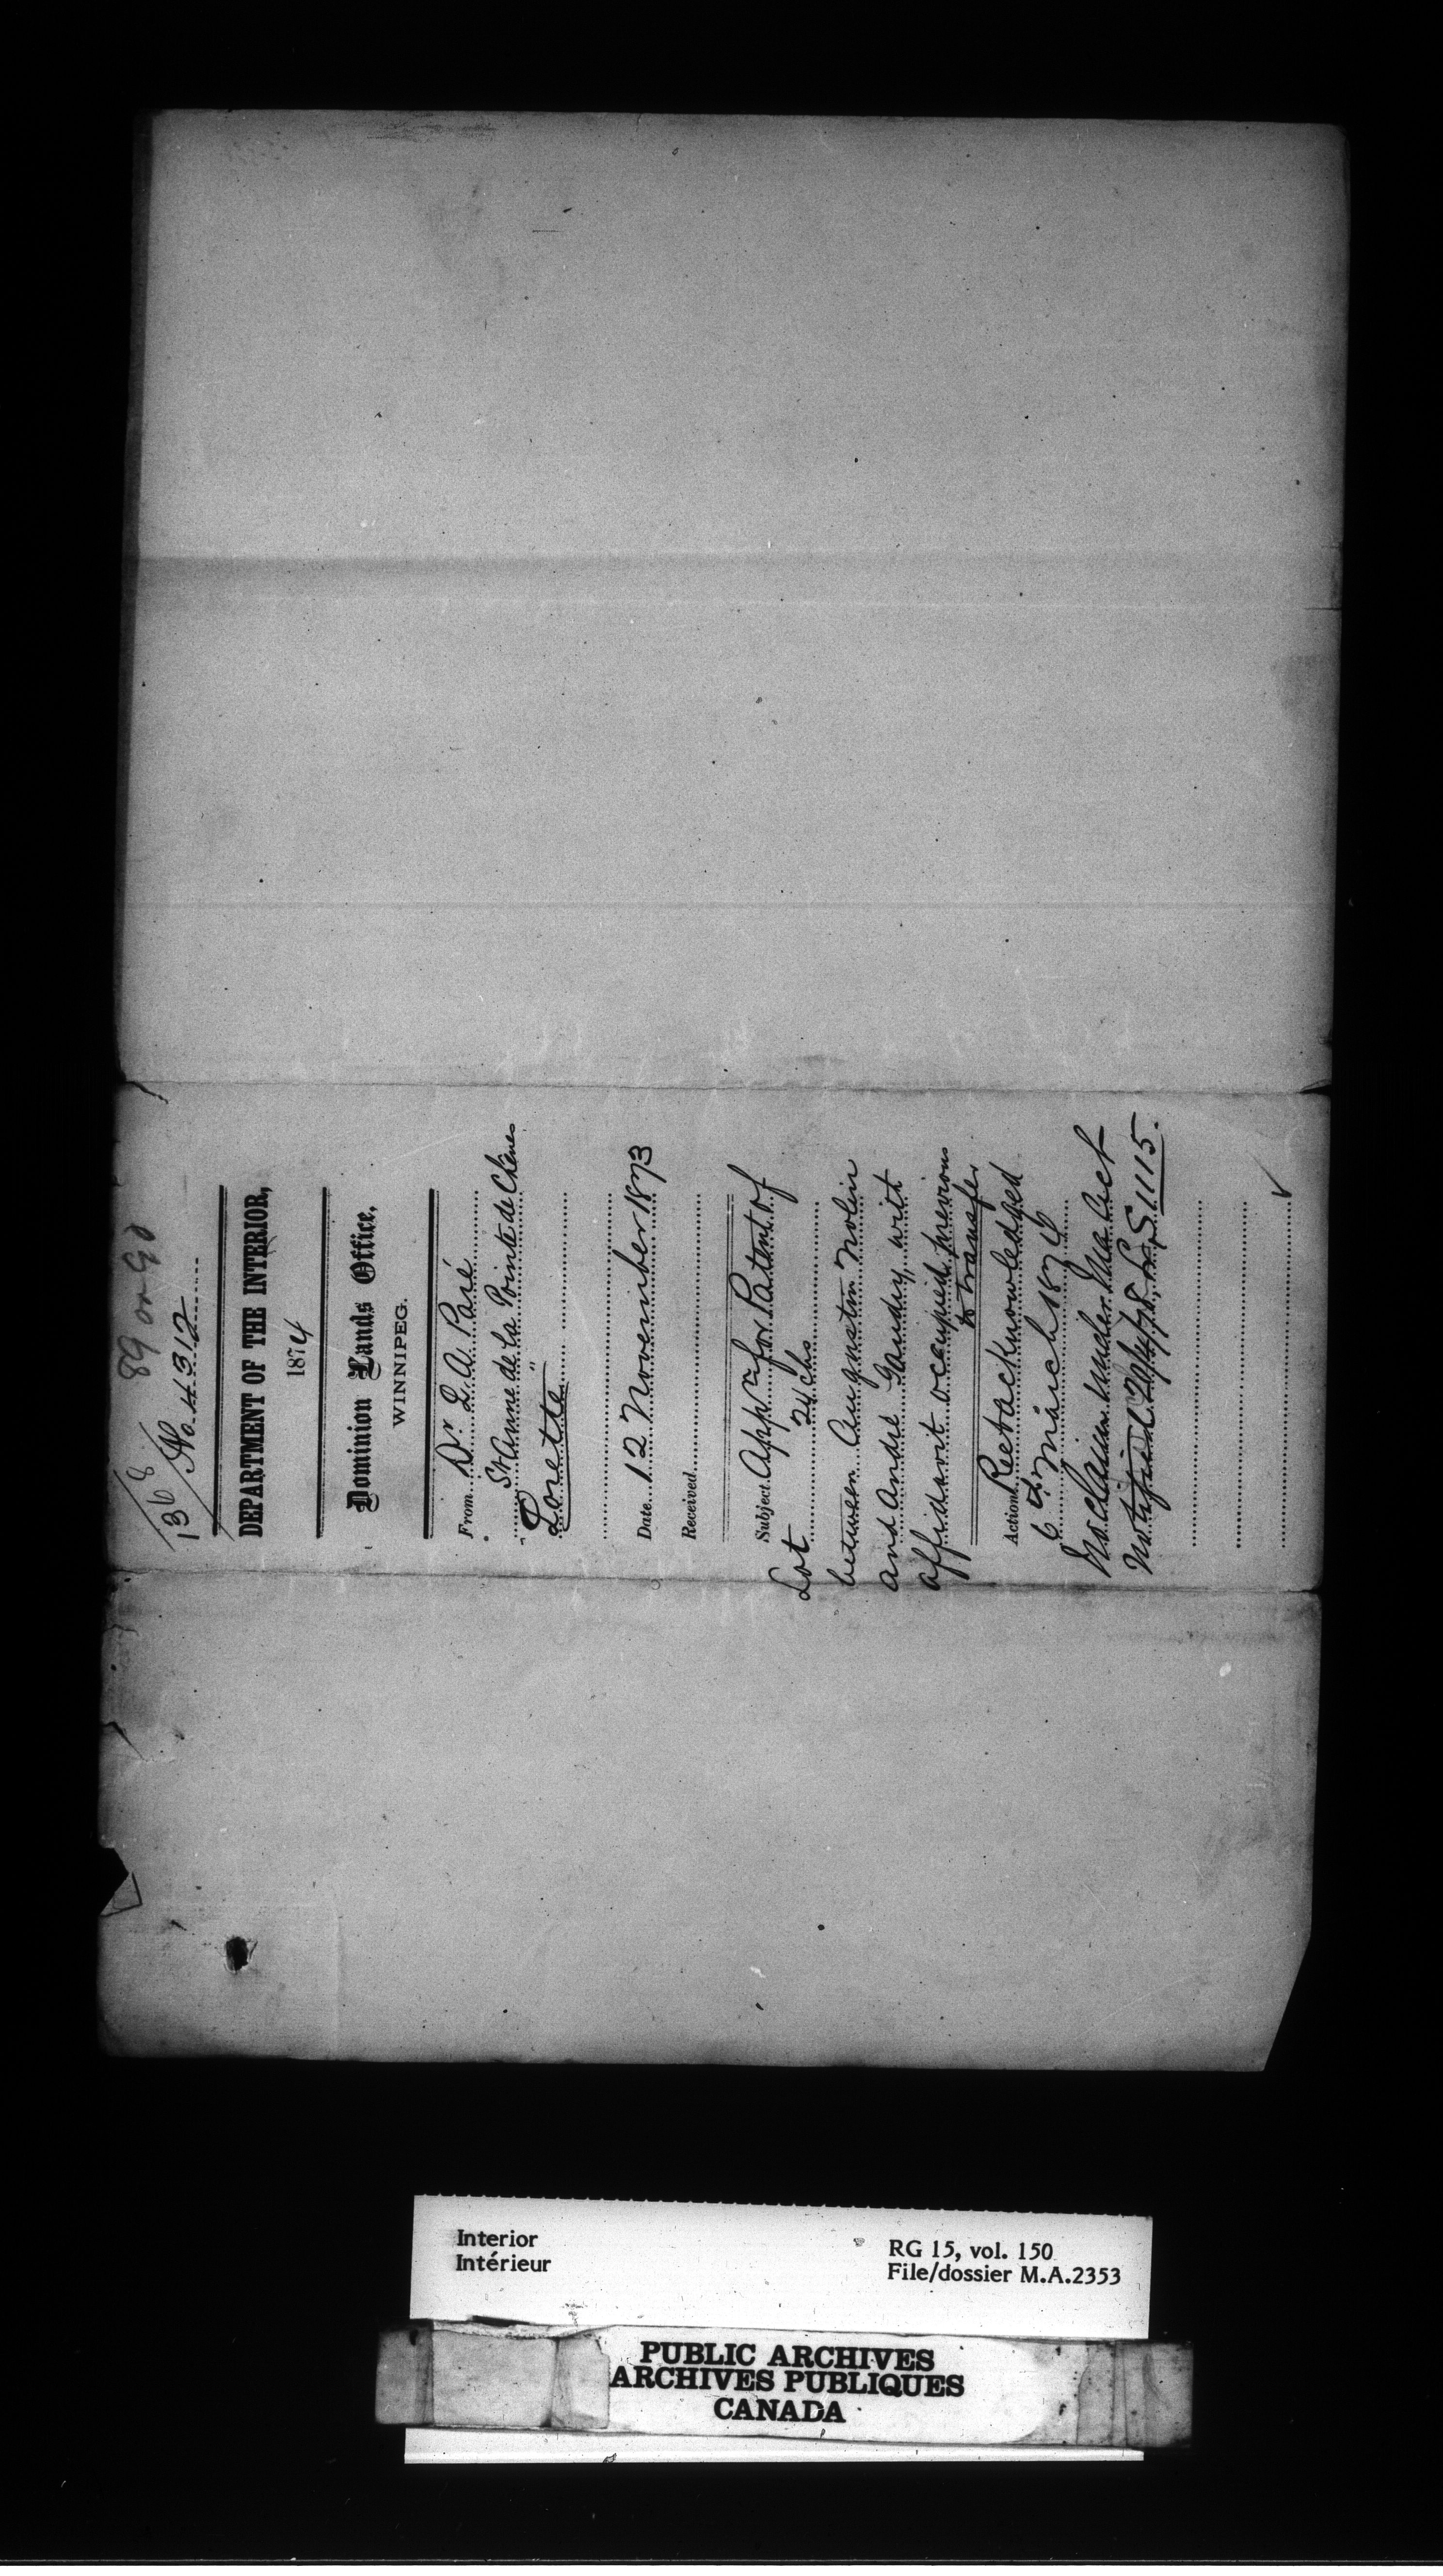 89 or 90
1368
No. 4312
DEPARTMENT OF THE INTERIOR,
1874
Dominion Lands Office,
WINNIPEG.
From Dr. L. A. Paré
St Anne de la Pointe de Chênes
Lorette
Date 12 November 1873
Received
Subject Appn for Patent of
Lot 24 chs
between Augustin Nolin
and André Gaudry with
affidavit occupied previous
to transfer
Action Rect acknowledged
6th March 1874
No claim under Ma Act
Notified S 1115.
Interior
Intérieur
RG 15, vol. 150
File/dossier M.A.2353
PUBLIC ARCHIVES
ARCHIVES PUBLIQUES
CANADA